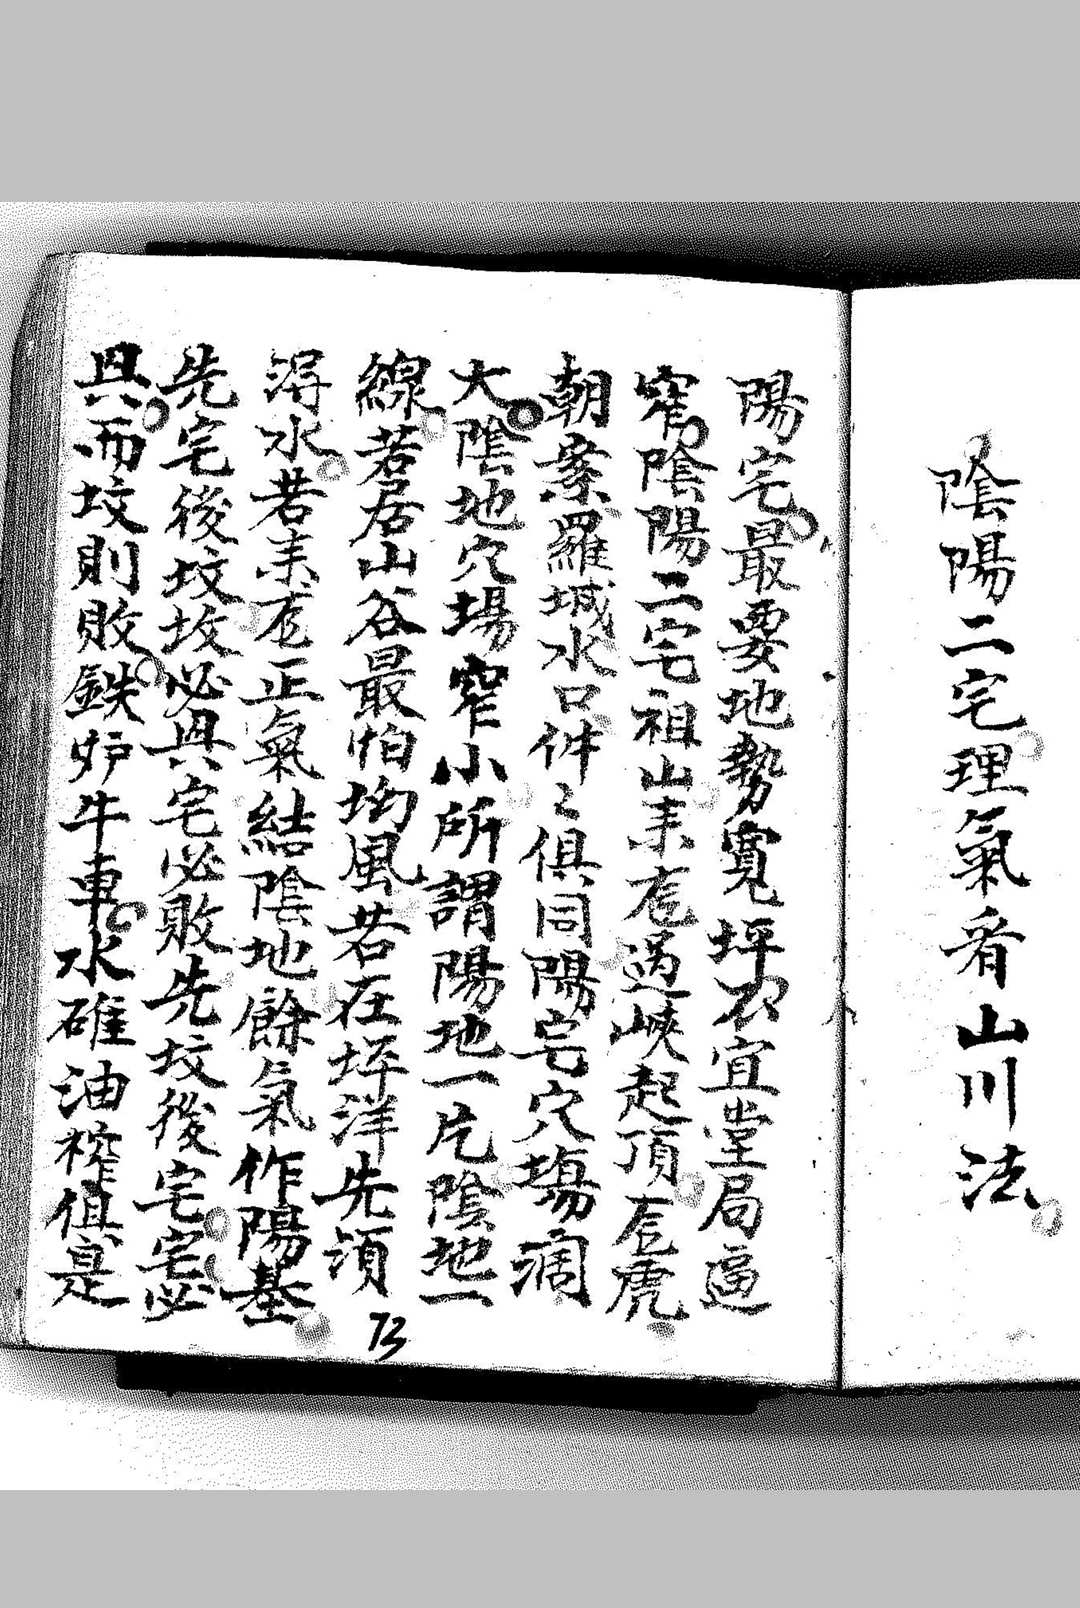 陰陽二宅理氣看山川法
陽宅最要地勢寬坪不宜堂局逼
窄陰陽二宅祖山耒龙過峽起頂龙虎
朝案羅城水口件々俱同陽宅穴場濶
大陰地穴場窄小所謂陽地一片陰地一
線若居山谷最怕坳風若在坪洋先須
淂水若耒龙正氣結陰地餘氣作陽基
先宅後坟坟必興宅必敗先坟後宅宅必
興而坟則敗鉄炉牛車水碓油榨俱是
73